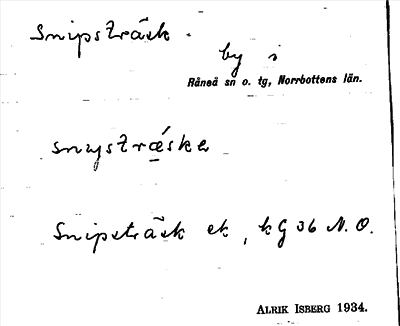 Snipsträsk.
by i
Råneå sn o. tg, Norrbottens län.
snystrǽske
Snipsträsk ek, kG 36 N.O.
ALRIK ISBERG 1934.